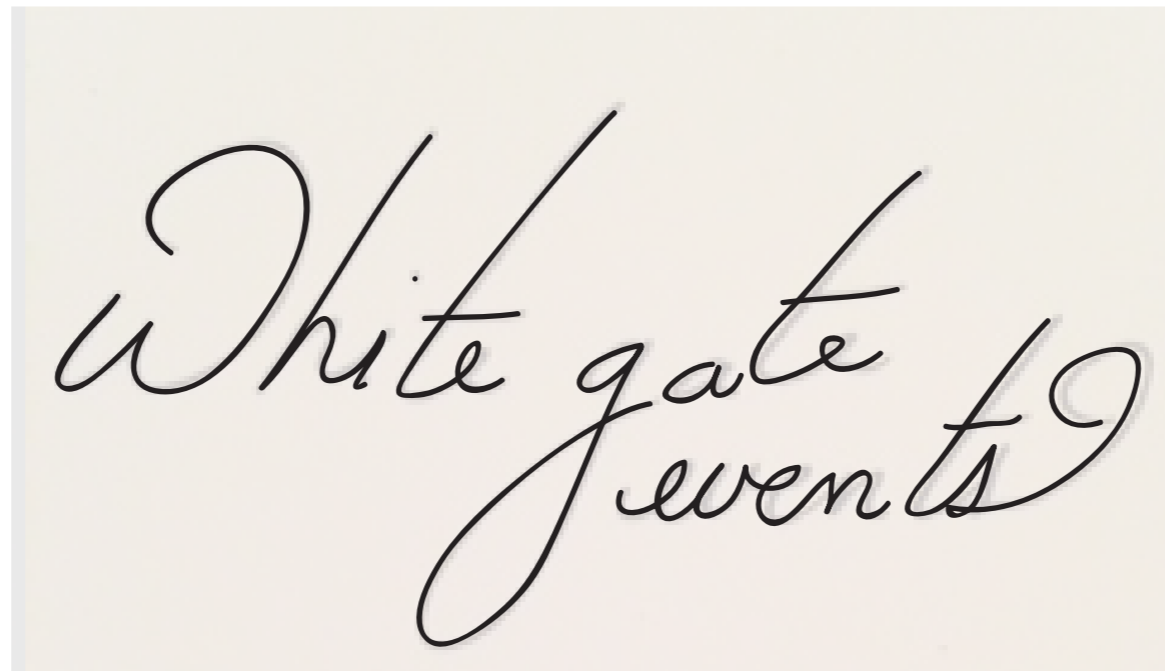 White gate
events